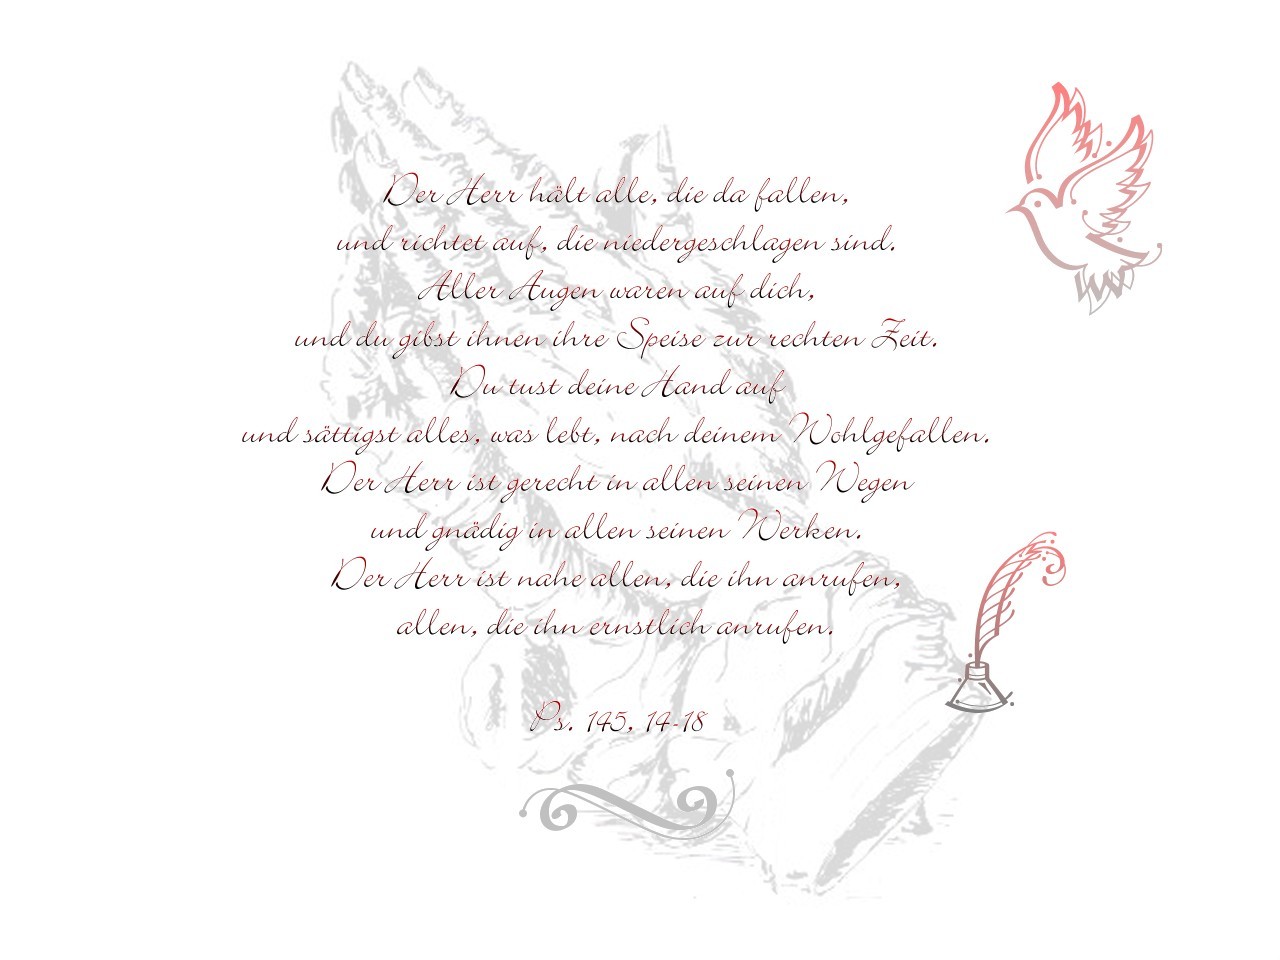 Der Herr hält alle, die da fallen,
und richtet auf, die niedergeschlagen sind.
Aller Augen waren auf dich,
und du gibst ihnen ihre Speise zur rechten Zeit.
Du tust deine Hand auf
und sättigst alles, was lebt, nach deinem Wohlgefallen.
Der Herr ist gerecht in allen seinen Wegen
und gnädig in allen seinen Werken.
Der Herr ist nahe allen, die ihn anrufen,
allen, die ihn ernstlich anrufen.
Ps. 145, 14-18